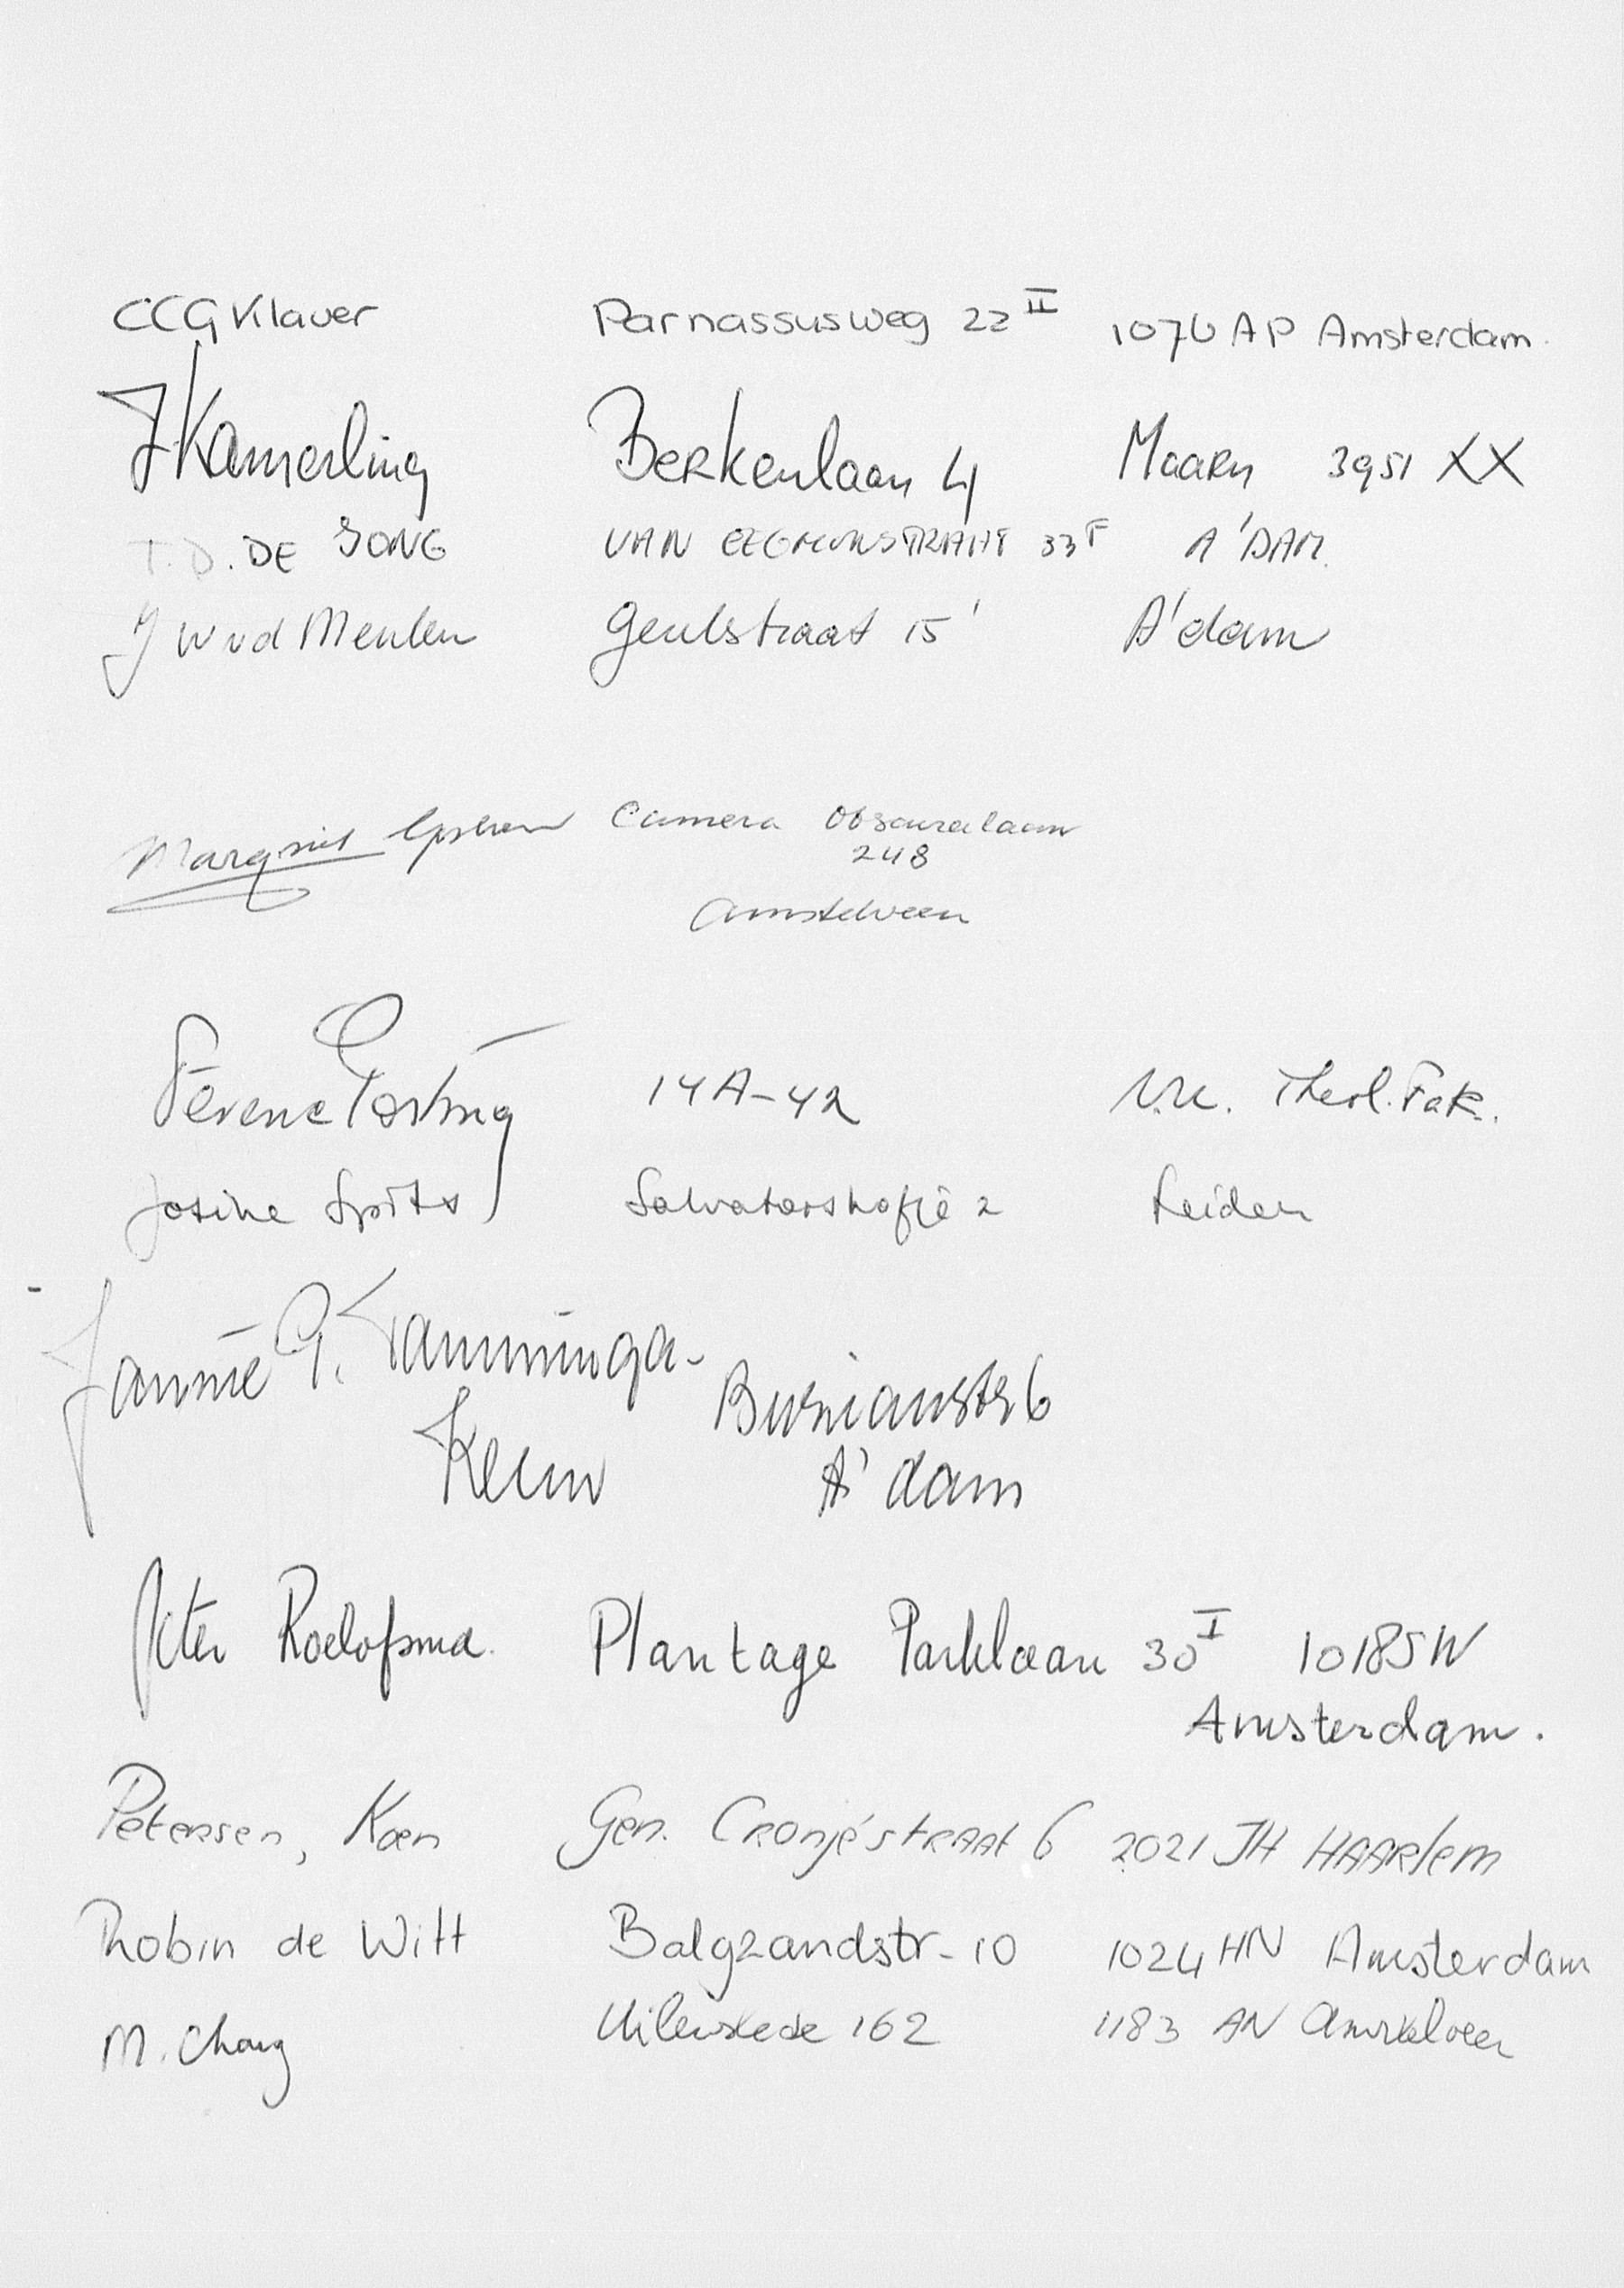 CCG Klaver Parnassusweg 22 II 1076 AP Amsterdam.
J Kamerling Berkenlaan 4 Maarn 3951 XX
T.D. DE JONG VAN 33 A'DAM.
J W vd Meulen Geulstraat 15' A'dam
Camera Obscuralaan
248
Amstelveen
Ferenc Postma 14A-42 V.U. Theol. Fak.
Josine Spits Salvatorshofje 2 Leiden
Jannie G. Kamminga-
A'dam
Peter Roelofsma. Plantage Parklaan 30 I 1018SW
Amsterdam.
Petersen, Koen Gen. Cronjéstraat 6 2021 JH HAARlem
Robin de Witt Balgzandstr-10 1024 HN Amsterdam
M. Chang Uilenstede 162 1183 AN Amstelveen